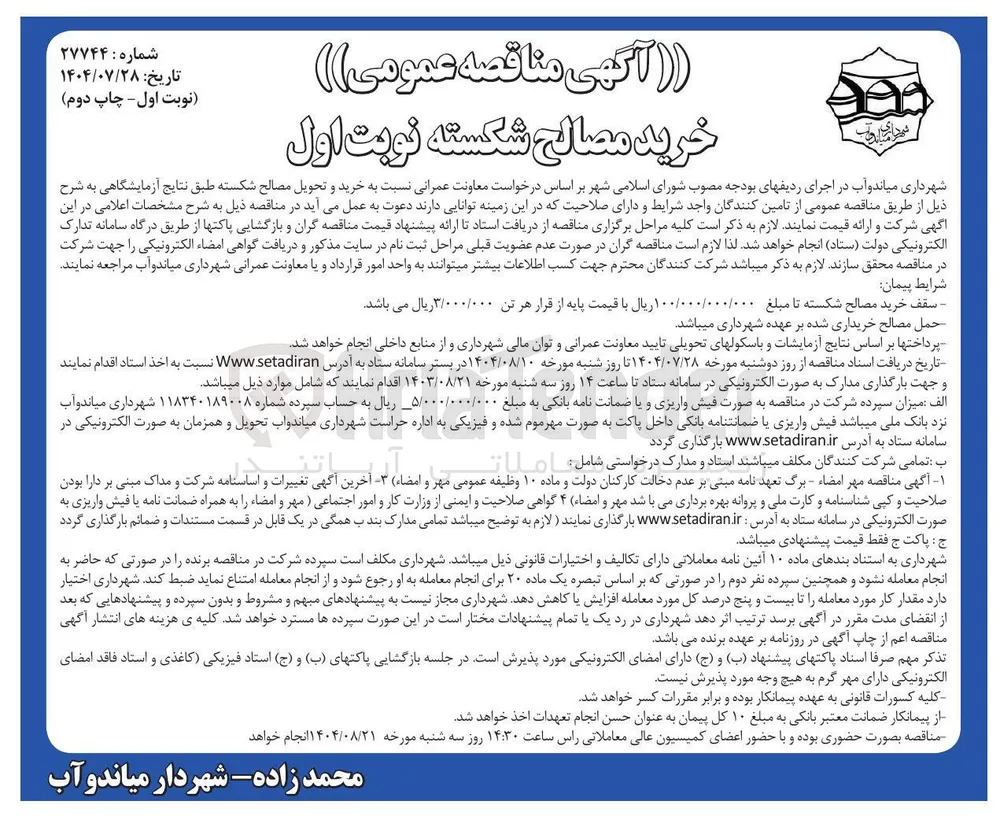 شماره : ۲۷۷۴۴
تاریخ: ۱۴۰۴/۰۷/۲۸
(نوبت اول- چاپ دوم)
((آگهی مناقصه عمومی))
خرید مصالح شکسته نوبت اول
شهرداری میاندوآب
شهرداری میاندوآب در اجرای ردیفهای بودجه مصوب شورای اسلامی شهر بر اساس درخواست معاونت عمرانی نسبت به خرید و تحویل مصالح شکسته طبق نتایج آزمایشگاهی به شرح
ذیل از طریق مناقصه عمومی از تامین کنندگان واجد شرایط و دارای صلاحیت که در این زمینه توانایی دارند دعوت به عمل می آید در مناقصه ذیل به شرح مشخصات اعلامی در این
اگهی شرکت و ارائه قیمت نمایند. لازم به ذکر است کلیه مراحل برگزاری مناقصه از دریافت استاد تا ارائه پیشنهاد قیمت مناقصه گران و بازگشایی پاکتها از طریق درگاه سامانه تدارک
الکترونیکی دولت (ستاد) انجام خواهد شد. لذا لازم است مناقصه گران در صورت عدم عضویت قبلی مراحل ثبت نام در سایت مذکور و دریافت گواهی امضاء الکترونیکی را جهت شرکت
در مناقصه محقق سازند. لازم به ذکر میباشد شرکت کنندگان محترم جهت کسب اطلاعات بیشتر میتوانند به واحد امور قرارداد و یا معاونت عمرانی شهرداری میاندوآب مراجعه نمایند.
شرایط پیمان:
- سقف خرید مصالح شکسته تا مبلغ ۱۰۰/۰۰۰/۰۰۰/۰۰۰ریال با قیمت پایه از قرار هر تن ۳/۰۰۰/۰۰۰ریال می باشد.
-حمل مصالح خریداری شده بر عهده شهرداری میباشد.
-پرداختها بر اساس نتایج آزمایشات و باسکولهای تحویلی تایید معاونت عمرانی و توان مالی شهرداری و از منابع داخلی انجام خواهد شد.
-تاریخ دریافت اسناد مناقصه از روز دوشنبه مورخه ۱۴۰۴/۰۷/۲۸تا روز شنبه مورخه ۱۴۰۴/۰۸/۱۰در بستر سامانه ستاد به آدرس Www.setadiran نسبت به اخذ استاد اقدام نمایند
و جهت بارگذاری مدارک به صورت الکترونیکی در سامانه ستاد تا ساعت ۱۴ روز سه شنبه مورخه ۱۴۰۳/۰۸/۲۱ اقدام نمایند که شامل موارد ذیل میباشد.
الف :میزان سپرده شرکت در مناقصه به صورت فیش واریزی و یا ضمانت نامه بانکی به مبلغ ۵/۰۰۰/۰۰۰/۰۰۰_ ریال به حساب سپرده شماره ۱۱۸۳۴۰۱۸۹۰۰۸ شهرداری میاندوآب
نزد بانک ملی میباشد فیش واریزی یا ضمانتنامه بانکی داخل پاکت به صورت مهرموم شده و فیزیکی به اداره حراست شهرداری میاندواب تحویل و همزمان به صورت الکترونیکی در
سامانه ستاد به آدرس www.setadiran.ir بارگذاری گردد
ب :تمامی شرکت کنندگان مکلف میباشند استاد و مدارک درخواستی شامل :
۱- آگهی مناقصه مهر امضاء - برگ تعهد نامه مبتی بر عدم دخالت کارکنان دولت و ماده ۱۰ وظیفه عمومی مهر و امضاء) ۳- آخرین آگهی تغییرات و اساسنامه شرکت و مداک مبنی بر دارا بودن
صلاحیت و کپی شناسنامه و کارت ملی و پروانه بهره برداری می با شد مهر و امضاء) ۴ گواهی صلاحیت و ایمنی از وزارت کار و امور اجتماعی ( مهر و امضاء را به همراه ضمانت نامه یا فیش واریزی به
صورت الکترونیکی در سامانه ستاد به آدرس : www.setadiran.ir بارگذاری نمایند ( لازم به توضیح میباشد تمامی مدارک بند ب همگی در یک قابل در قسمت مستندات و ضمائم بارگذاری گردد
ج : پاکت ج فقط قیمت پیشنهادی میباشد.
شهرداری به استناد بندهای ماده ۱۰ آئین نامه معاملاتی دارای تکالیف و اختیارات قانونی ذیل میباشد. شهرداری مکلف است سپرده شرکت در مناقصه برنده را در صورتی که حاضر به
انجام معامله نشود و همچنین سپرده نفر دوم را در صورتی که بر اساس تبصره یک ماده ۲۰ برای انجام معامله به او رجوع شود و از انجام معامله امتناع نماید ضبط کند. شهرداری اختیار
دارد مقدار کار مورد معامله را تا بیست و پنج درصد کل مورد معامله افزایش یا کاهش دهد. شهرداری مجاز نیست به پیشنهادهای مبهم و مشروط و بدون سپرده و پیشنهادهایی که بعد
از انقضای مدت مقرر در آگهی برسد ترتیب اثر دهد شهرداری در رد یک یا تمام پیشنهادات مختار است در این صورت سپرده ها مسترد خواهد شد. کلیه ی هزینه های انتشار آگهی
مناقصه اعم از چاپ آگهی در روزنامه بر عهده برنده می باشد.
تذکر مهم صرفا اسناد پاکتهای پیشنهاد (ب) و (ج) دارای امضای الکترونیکی مورد پذیرش است. در جلسه بازگشایی پاکتهای (ب) و (ج) استاد فیزیکی (کاغذی و استاد فاقد امضای
الکترونیکی دارای مهر گرم به هیچ وجه مورد پذیرش نیست.
-کلیه کسورات قانونی به عهده پیمانکار بوده و برابر مقررات کسر خواهد شد.
-از پیمانکار ضمانت معتبر بانکی به مبلغ ۱۰ کل پیمان به عنوان حسن انجام تعهدات اخذ خواهد شد.
-مناقصه بصورت حضوری بوده و با حضور اعضای کمیسیون عالی معاملاتی راس ساعت ۱۴:۳۰ روز سه شنبه مورخه ۱۴۰۴/۰۸/۲۱انجام خواهد
محمد زاده- شهردار میاندوآب